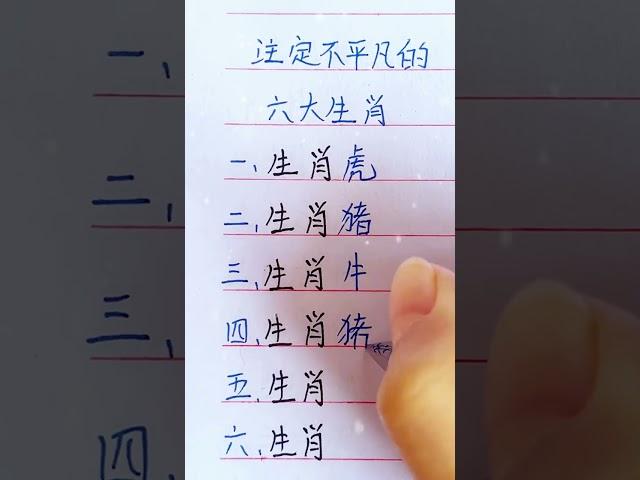 注定不平凡的
六大生肖
一、生肖虎
二、生肖猪
三、生肖牛
四、生肖猪
五、生肖
六、生肖